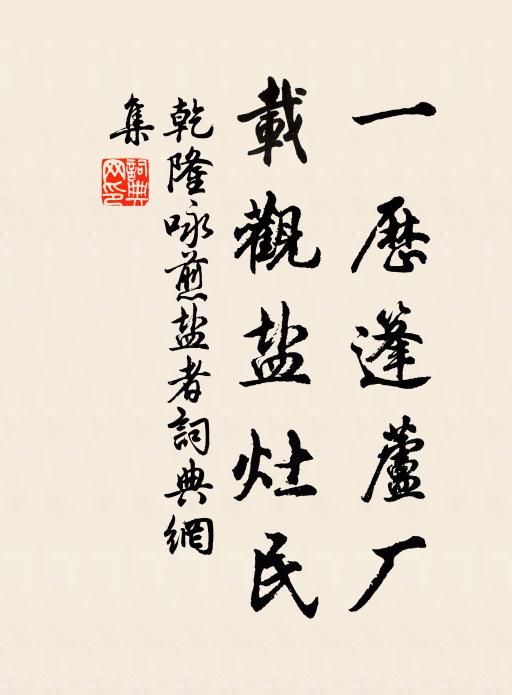 一歷篷蘆厂
載觀盐灶民
乾隆咏煎盐者詞典網
集
詞典网印